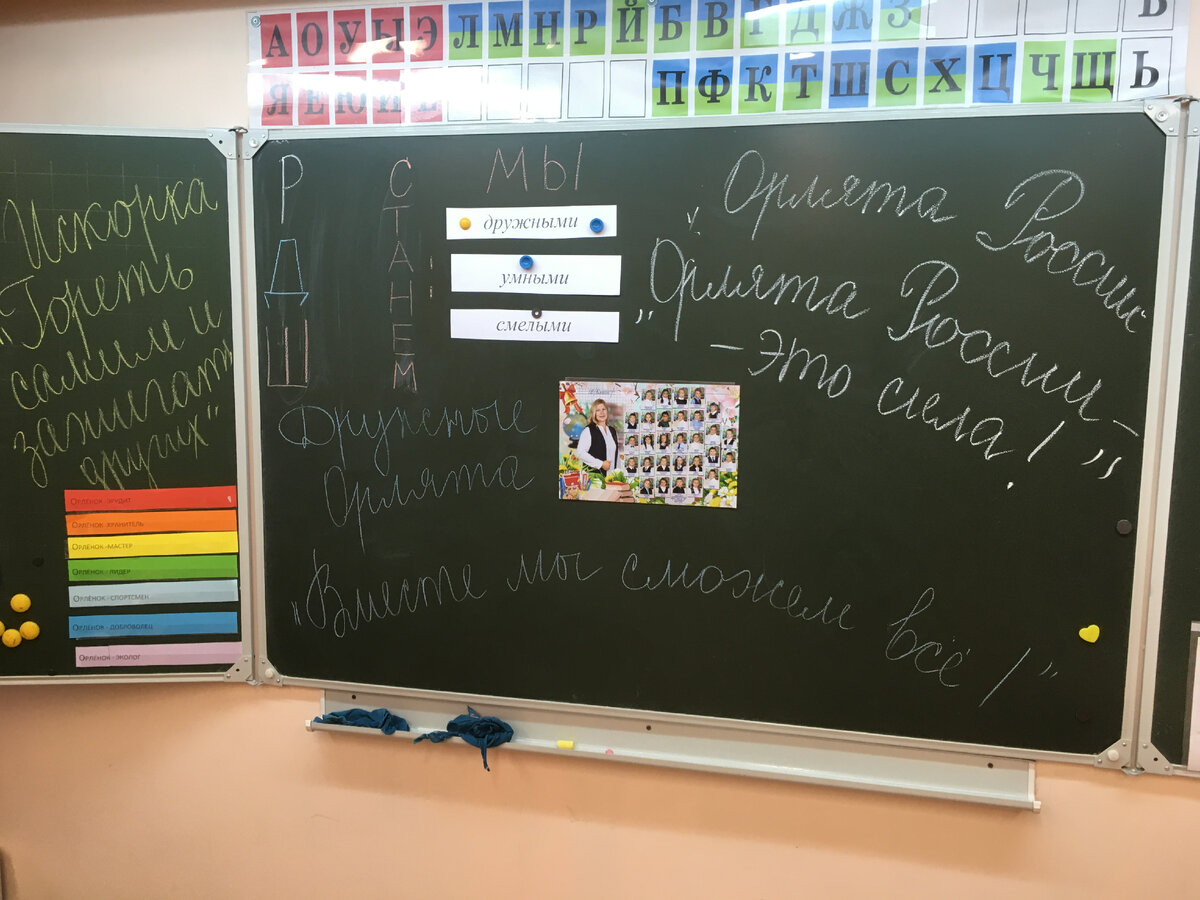 А О У Ы Э Л М Н Р Й Б В Г Д Ж З Ъ
Я Ё Ю И Е П Ф К Т Ш С Х Ц Ч Щ Ь
Искорка
"Гореть
самим и
зажигать
других"
ОРЛЁНОК-ЭРУДИТ
ОРЛЁНОК-ХРАНИТЕЛЬ
ОРЛЁНОК-МАСТЕР
ОРЛЁНОК-ЛИДЕР
ОРЛЁНОК-СПОРТСМЕН
ОРЛЁНОК-ДОБРОВОЛЕЦ
ОРЛЁНОК-ЭКОЛОГ
РДШ
СТАНЕМ
МЫ
дружными
умными
смелыми
Орлята России
"Орлята России –
– это сила!"
Дружные
Орлята
"Вместе мы сможем всё!"